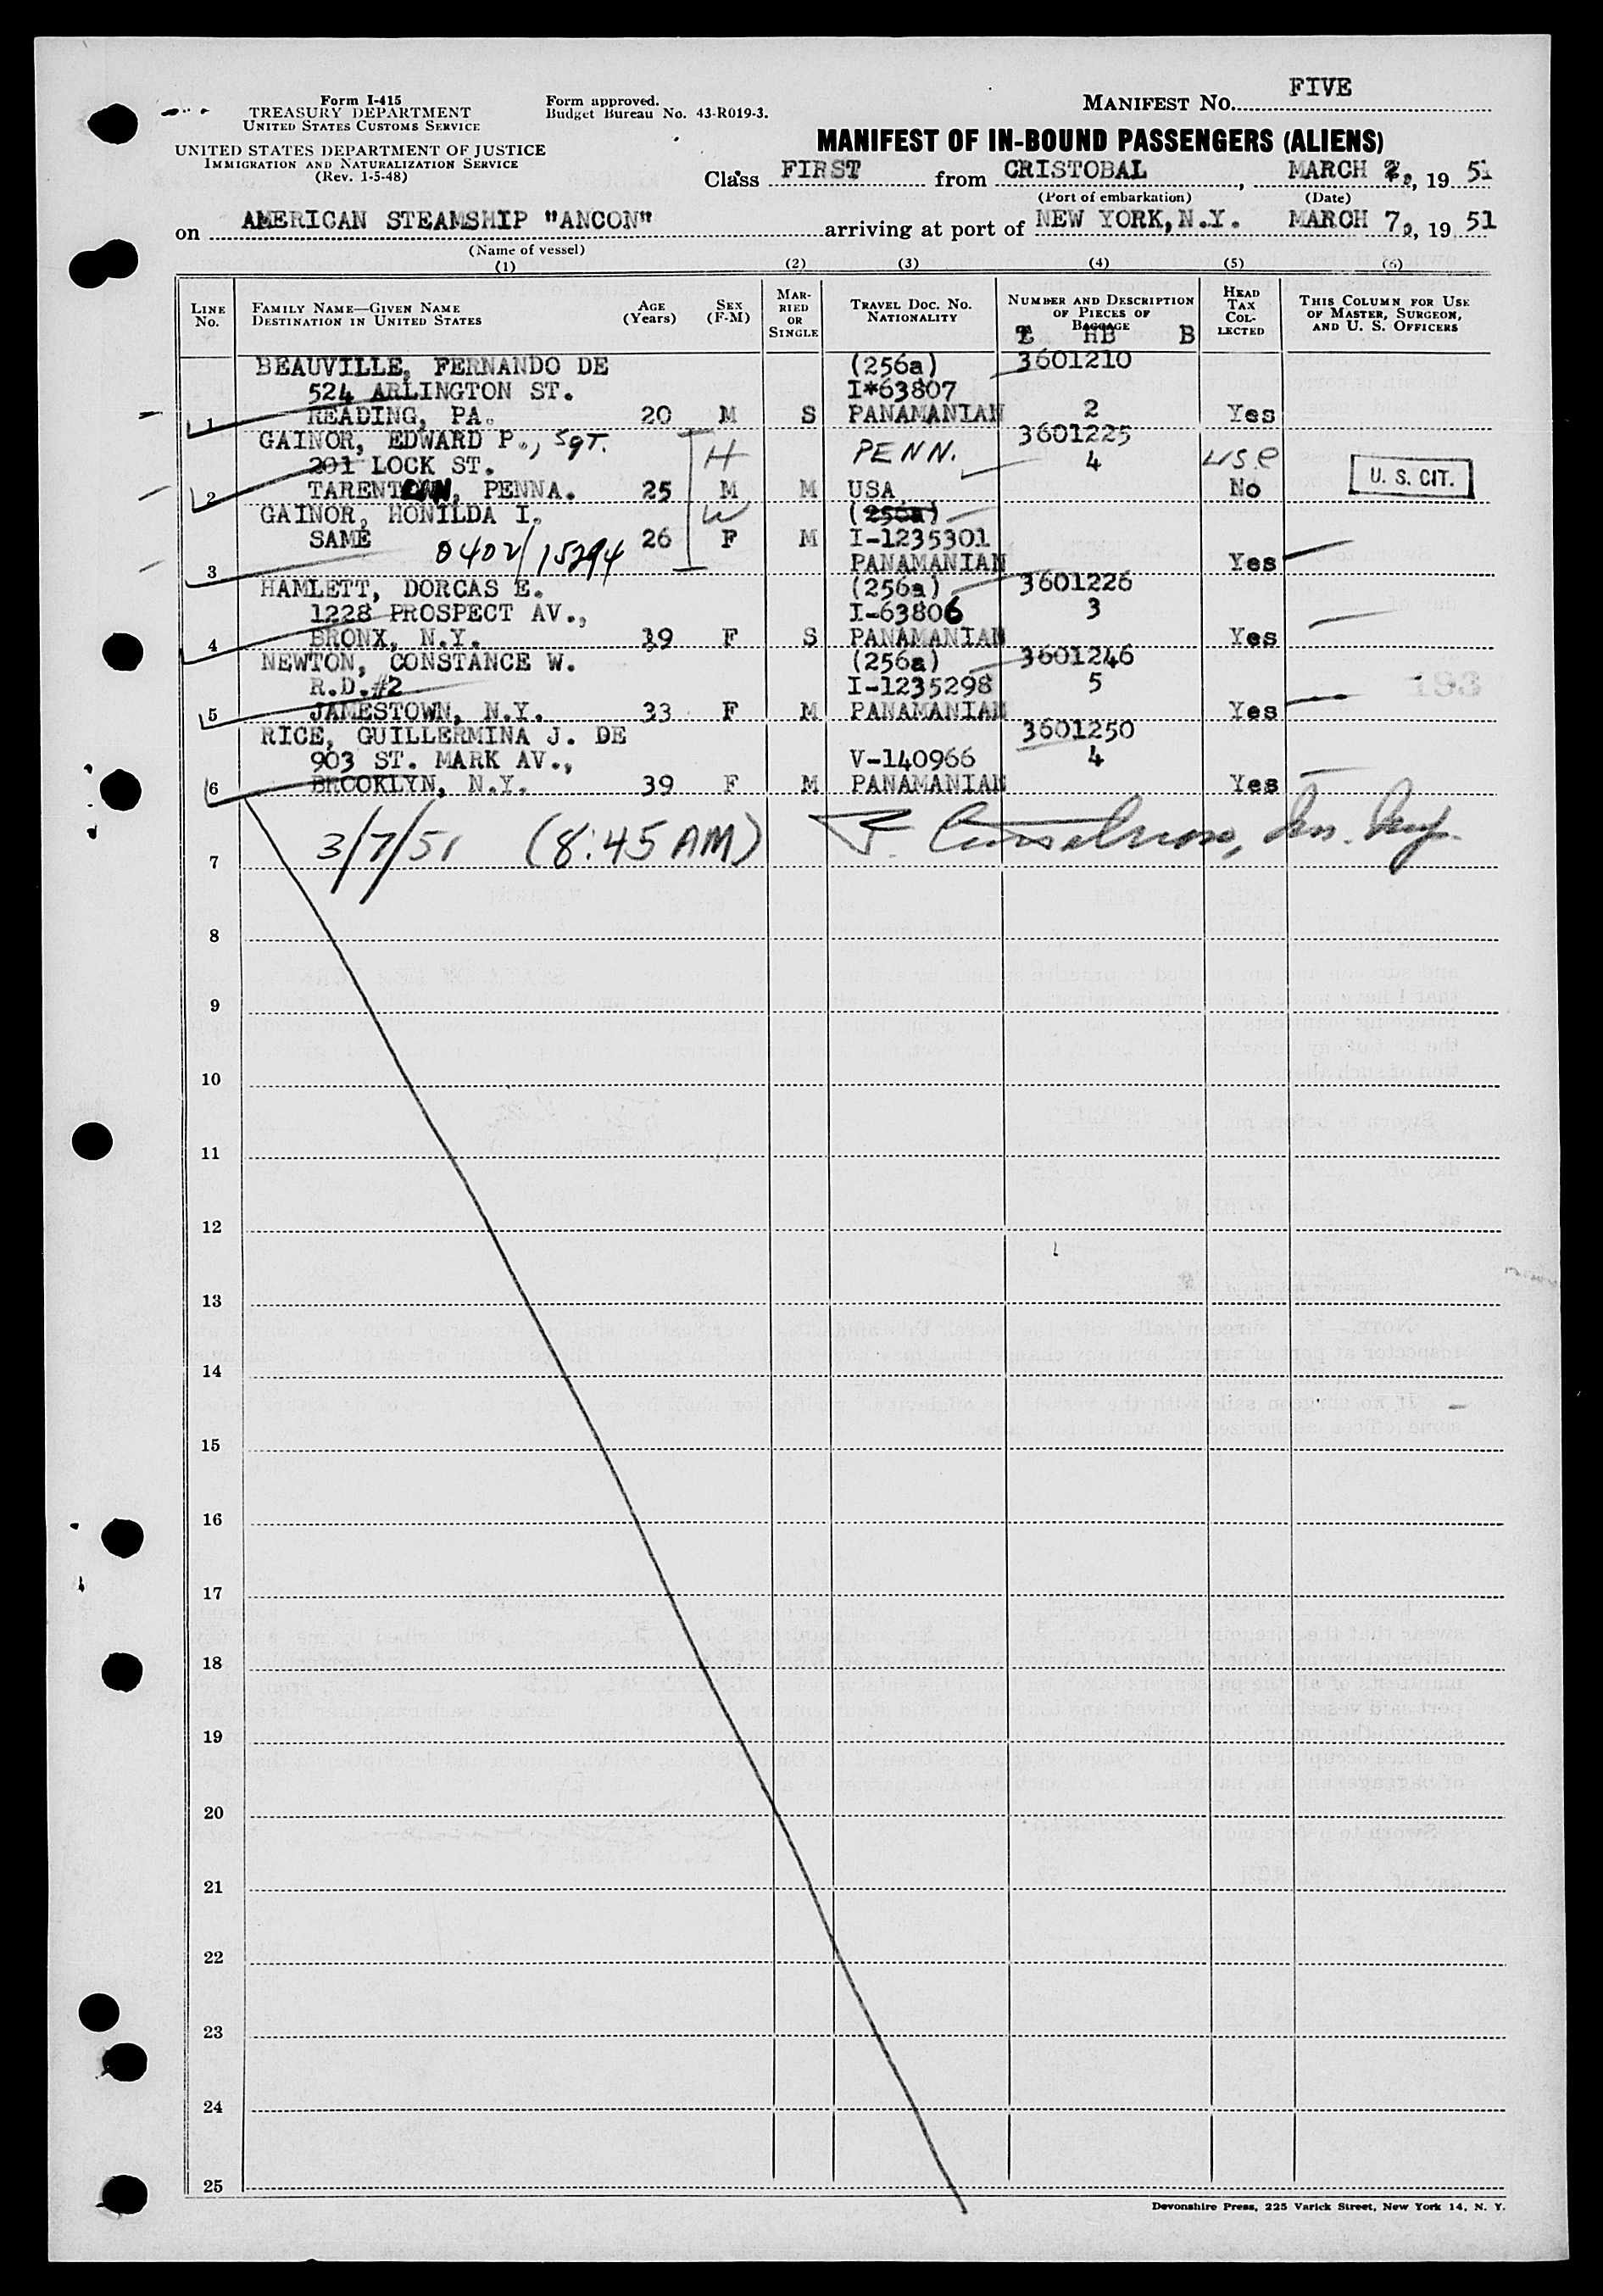 Form I-415
TREASURY DEPARTMENT
UNITED STATES CUSTOMS SERVICE
UNITED STATES DEPARTMENT OF JUSTICE
IMMIGRATION AND NATURALIZATION SERVICE
(Rev. 1-5-48)
Form approved.
Budget Bureau No. 43-R019-3.
MANIFEST NO. FIVE
MANIFEST OF IN-BOUND PASSENGERS (ALIENS)
Class FIRST from CRISTOBAL, MARCH 2, 19 51
(Port of embarkation) (Date)
on AMERICAN STEAMSHIP "ANCON" arriving at port of NEW YORK, N.Y. MARCH 7, 19 51
(Name of vessel)
(1) (2) (3) (4) (5) (6)
LINE No. FAMILY NAME—GIVEN NAME DESTINATION IN UNITED STATES AGE (Years) SEX (F-M) MARRIED OR SINGLE TRAVEL DOC. NO. NATIONALITY NUMBER AND DESCRIPTION OF PIECES OF BAGGAGE HEAD TAX COLLECTED THIS COLUMN FOR USE OF MASTER, SURGEON, AND U. S. OFFICERS
HB B
BEAUVILLE, FERNANDO DE (256a) 3601210
524 ARLINGTON ST. I*63807
1 READING, PA. 20 M S PANAMANIAN 2 Yes
GAINOR, EDWARD P., Sgt. 3601225
201 LOCK ST. H PENN. 4 USC
2 TARENTUM, PENNA. 25 M M USA No U. S. CIT.
GAINOR, HONILDA I. W (256a)
SAME 0402/15294 26 F M I-1235301
3 PANAMANIAN Yes
HAMLETT, DORCAS E. (256a) 3601226
1228 PROSPECT AV., I-63806 3
4 BRONX, N.Y. 39 F S PANAMANIAN Yes
NEWTON, CONSTANCE W. (256a) 3601246
R.D.#2 I-1235298 5
5 JAMESTOWN, N.Y. 33 F M PANAMANIAN Yes
RICE, GUILLERMINA J. DE 3601250
903 ST. MARK AV., V-140966 4
6 BROOKLYN, N.Y. 39 F M PANAMANIAN Yes
3/7/51 (8:45 AM)
7
8
9
10
11
12
13
14
15
16
17
18
19
20
21
22
23
24
25
Devonshire Press, 225 Varick Street, New York 14, N. Y.